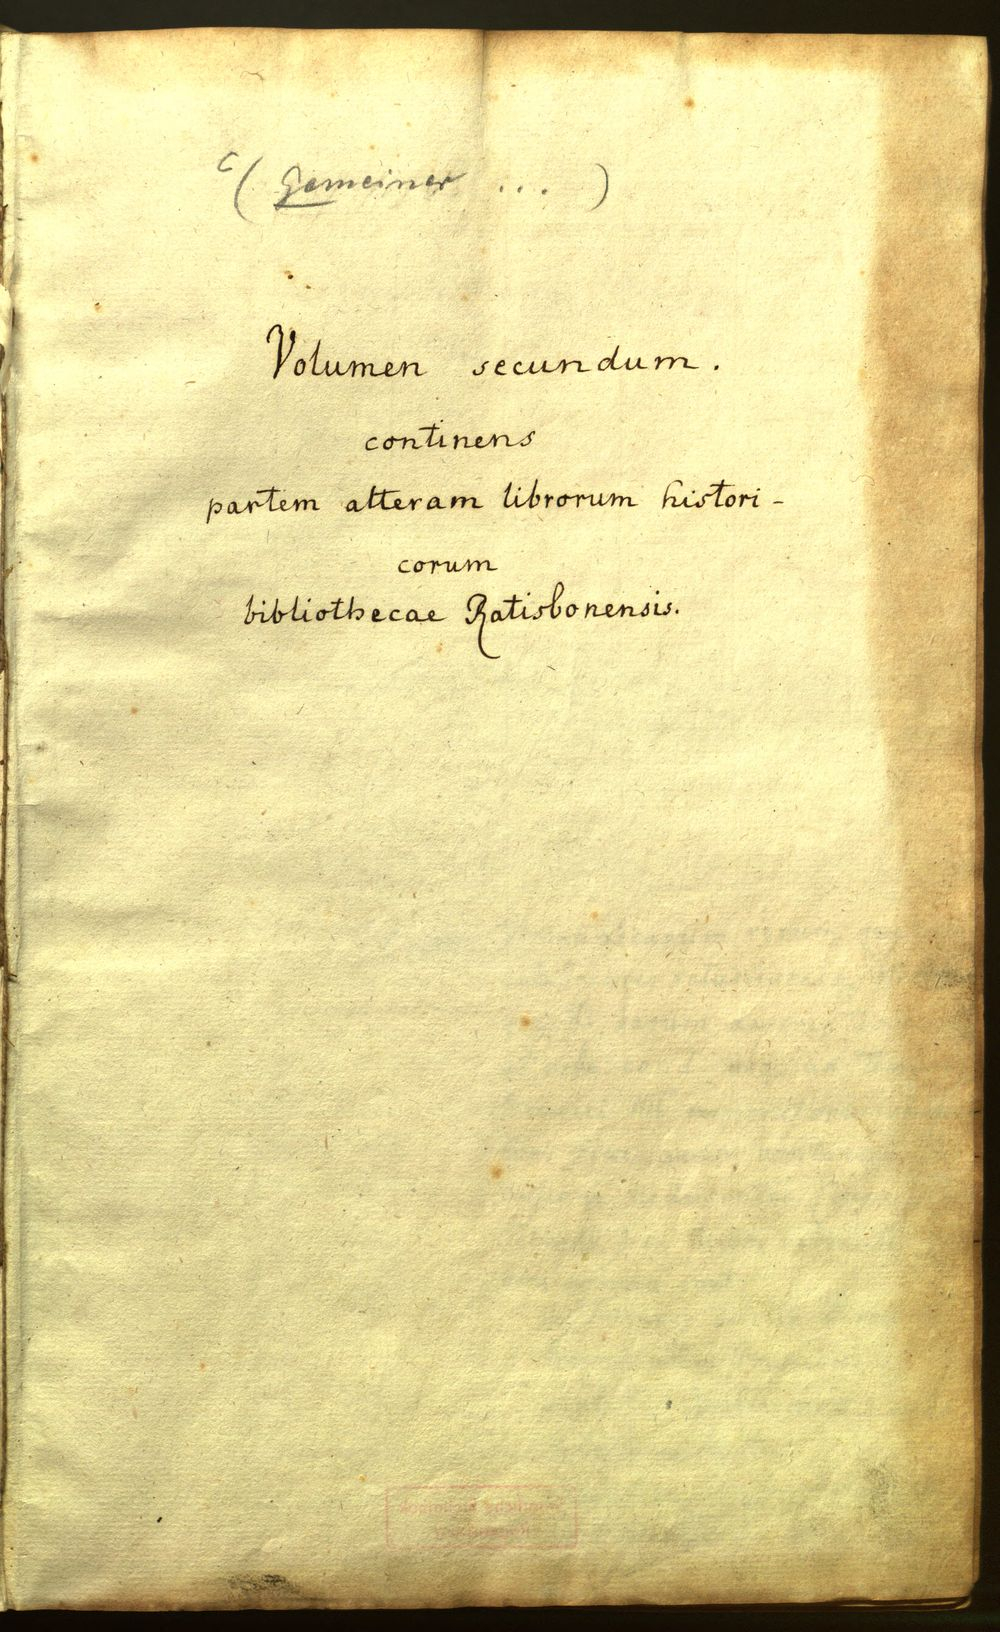 (Gemeiner ...)
Volumen secundum.
continens
partem alteram librorum histori-
corum
bibliothecae Ratisbonensis.